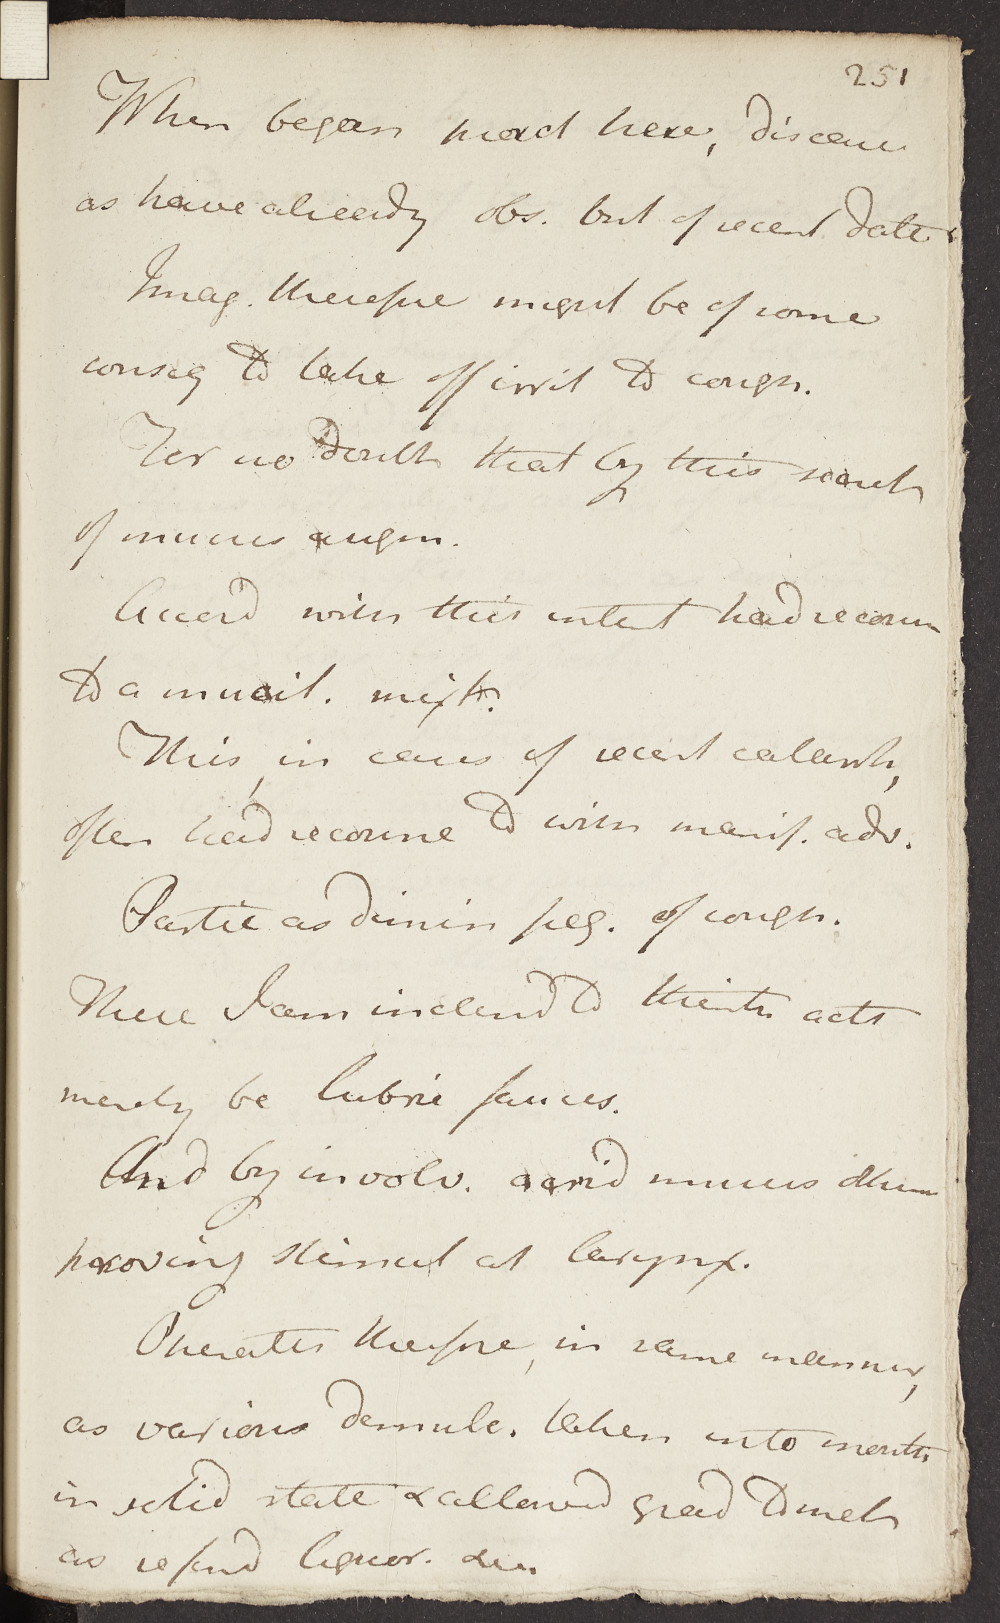 251
When began pract here, disease
as have already obs. but of recent date
Imag. therefore might be of some
conseq to take off irrit to cough.
For no doubt that by this
of mucus augm.
Accord with this intent had recour
to a mucil. mixt.
This, in cases of recent catarrh,
often had recourse to with manif. adv.
Partic as dimin freq. of cough.
Here I am inclend to think acts
merely be lubric fauces.
And by involv. acrid mucus
proving stimul at larynx.
Operates therefore, in same manner,
as various demulc. taken into mouth
in solid state & allowed grad to melt
as refind liquor. &c.